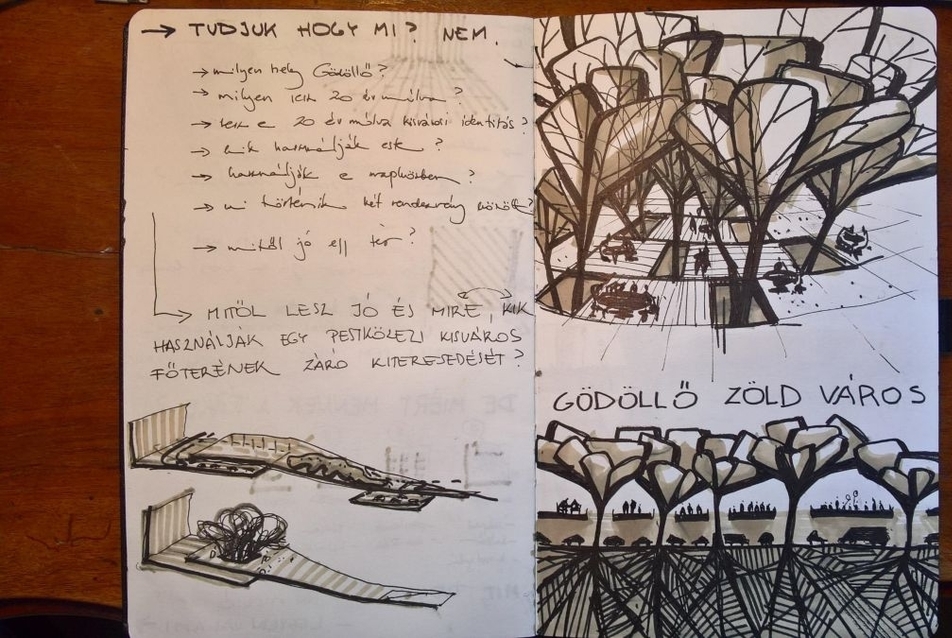 → TUDJUK HOGY MI? NEM.
→ milyen hely Gödöllő?
→ milyen lesz 20 év múlva?
→ lesz e 20 év múlva kisvárosi identitás?
→ kik használják este?
→ használják e napközben?
→ mi történik két rendezvény között?
→ mitől jó egy tér?
→ MITŐL LESZ JÓ ÉS MIRE, KIK
HASZNÁLJÁK EGY PESTKÖZELI KISVÁROS
FŐTERÉNEK ZÁRÓ KITERESEDÉSÉT?
GÖDÖLLŐ ZÖLD VÁROS